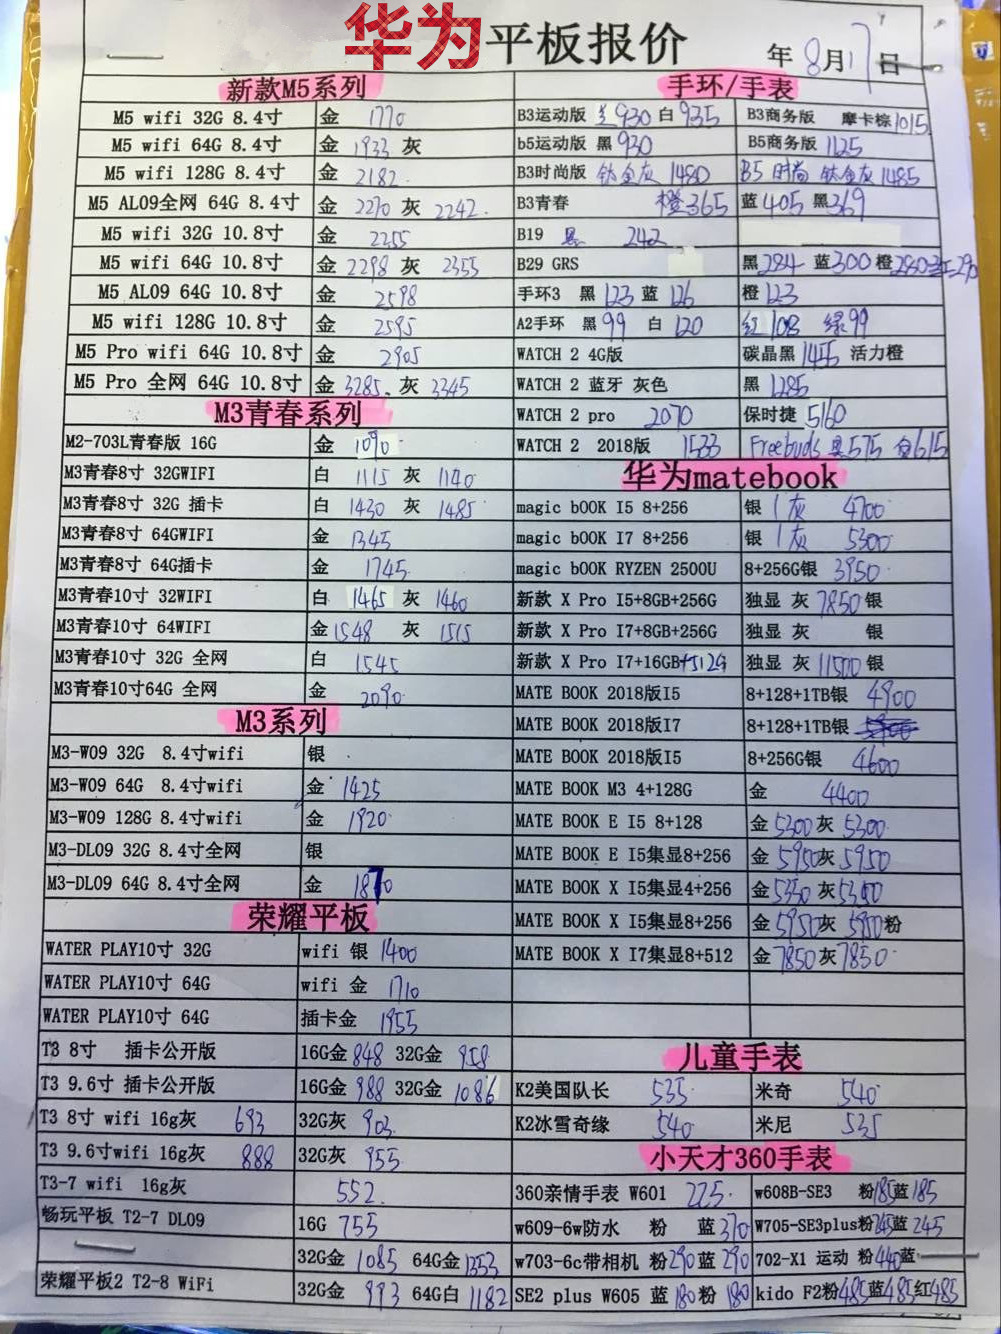 华为平板报价 年8月17日
新款M5系列
M5 wifi 32G 8.4寸 金 1770
M5 wifi 64G 8.4寸 金 1933 灰
M5 wifi 128G 8.4寸 金 2182
M5 AL09全网 64G 8.4寸 金 2270 灰 2242
M5 wifi 32G 10.8寸 金 2255
M5 wifi 64G 10.8寸 金 2298 灰 2355
M5 AL09 64G 10.8寸 金 2598
M5 wifi 128G 10.8寸 金 2595
M5 Pro wifi 64G 10.8寸 金 2905
M5 Pro 全网 64G 10.8寸 金 3285 灰 3345
M3青春系列
M2-703L青春版 16G 金 1090
M3青春8寸 32GWIFI 白 1115 灰 1140
M3青春8寸 32G 插卡 白 1430 灰 1485
M3青春8寸 64GWIFI 金 1345
M3青春8寸 64G插卡 金 1745
M3青春10寸 32WIFI 白 1465 灰 1460
M3青春10寸 64WIFI 金 1548 灰 1515
M3青春10寸 32G 全网 白 1545
M3青春10寸64G 全网 金 2090
M3系列
M3-W09 32G 8.4寸wifi 银
M3-W09 64G 8.4寸wifi 金 1425
M3-W09 128G 8.4寸wifi 金 1920
M3-DL09 32G 8.4寸全网 银
M3-DL09 64G 8.4寸全网 金 1870
荣耀平板
WATER PLAY10寸 32G wifi 银 1400
WATER PLAY10寸 64G wifi 金 1710
WATER PLAY10寸 64G 插卡金 1955
T3 8寸 插卡公开版 16G金 848 32G金 958
T3 9.6寸 插卡公开版 16G金 988 32G金 1086
T3 8寸 wifi 16g灰 693 32G灰 903
T3 9.6寸wifi 16g灰 888 32G灰 955
T3-7 wifi 16g灰 552
畅玩平板 T2-7 DL09 16G 755
32G金 1085 64G金 1353
荣耀平板2 T2-8 WiFi 32G金 993 64G白 1182
手环/手表
B3运动版 930 白 935 B3商务版 摩卡棕1015
b5运动版 黑 930 B5商务版 1125
B3时尚版 钛金灰 1480 B5 时尚 钛金灰 1485
B3青春 橙365 蓝405 黑369
B19 黑 242
B29 GRS 黑284 蓝300 橙280 红290
手环3 黑 123 蓝 126 橙 123
A2手环 黑 99 白 120 红108 绿99
WATCH 2 4G版 碳晶黑 1455 活力橙
WATCH 2 蓝牙 灰色 黑 1285
WATCH 2 pro 2070 保时捷 5160
WATCH 2 2018版 1533 Freebuds 黑575 白615
华为matebook
magic bOOK I5 8+256 银 1 灰 4700
magic bOOK I7 8+256 银 1 灰 5300
magic bOOK RYZEN 2500U 8+256G银 3950
新款 X Pro I5+8GB+256G 独显 灰 7850 银
新款 X Pro I7+8GB+256G 独显 灰 银
新款 X Pro I7+16GB+512G 独显 灰 11500 银
MATE BOOK 2018版I5 8+128+1TB银 4900
MATE BOOK 2018版I7 8+128+1TB银
MATE BOOK 2018版I5 8+256G银 4600
MATE BOOK M3 4+128G 金 4400
MATE BOOK E I5 8+128 金 5300 灰 5300
MATE BOOK E I5集显8+256 金 5950 灰 5950
MATE BOOK X I5集显4+256 金 5350 灰 5350
MATE BOOK X I5集显8+256 金 5950 灰 5950 粉
MATE BOOK X I7集显8+512 金 7850 灰 7850
儿童手表
K2美国队长 535 米奇 540
K2冰雪奇缘 540 米尼 535
小天才360手表
360亲情手表 W601 225 w608B-SE3 粉185 蓝185
w609-6w防水 粉 蓝370 W705-SE3plus粉245蓝 245
w703-6c带相机 粉290 蓝 290 702-X1 运动 粉440蓝
SE2 plus W605 蓝 180 粉 180 kido F2粉485蓝485红485